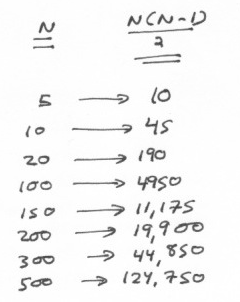 N N(N-1)
2
5 → 10
10 → 45
20 → 190
100 → 4950
150 → 11,175
200 → 19,900
300 → 44,850
500 → 124,750